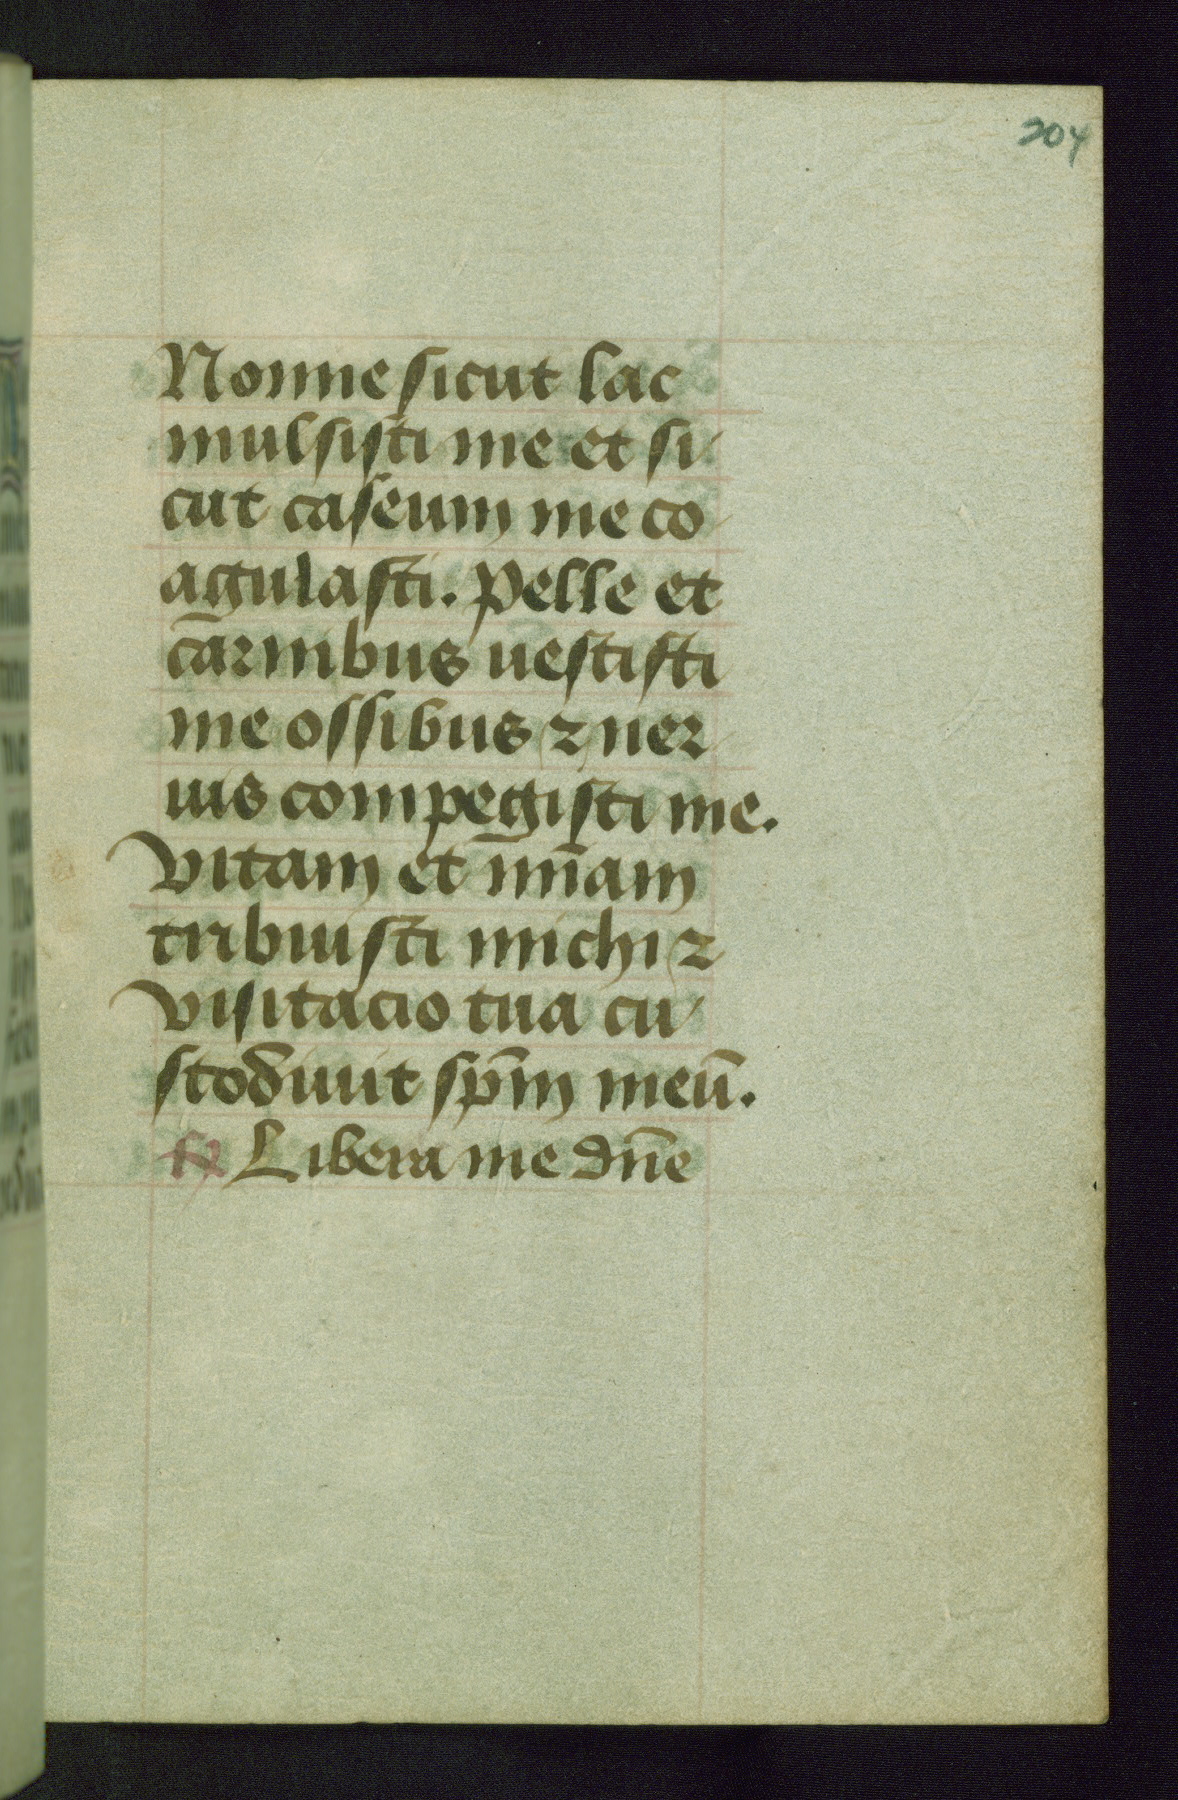 204
Nonne sicut lac
mulsisti me et si
cut caseum me co
agulasti. Pelle et
carnibus uestisti
me ossibus ⁊ ner
uis compegisti me.
Vitam et mīam
tribuisti michi ⁊
visitacio tua cu
stodiuit spm̄ meū.
℟ Libera me dn̄e